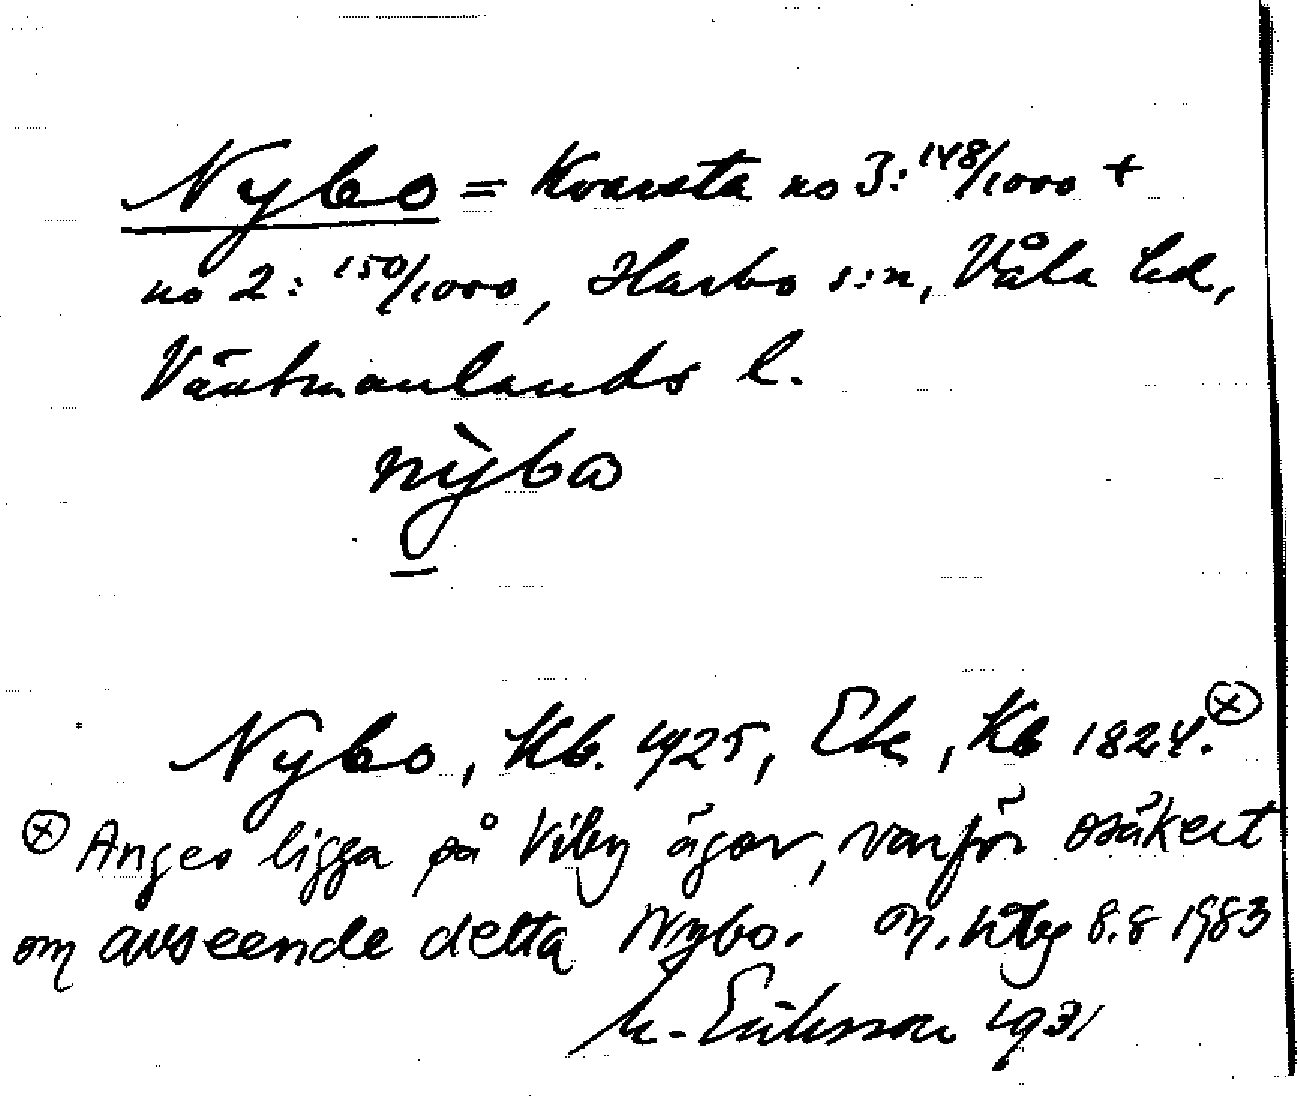 Nybo = Kvarsta no 3:148/1000 +
no 2:150/1000, Harbo s:n, Våla hd,
Västmanlands l.
nỳbo
Nybo, Kb. 1925, Ek, Kb 1824. ⓧ
ⓧ Anges ligga på Viby ägor, varför osäkert
om avseende detta Nybo. M. Wbg 8.8 1983
M. Eriksson 1931